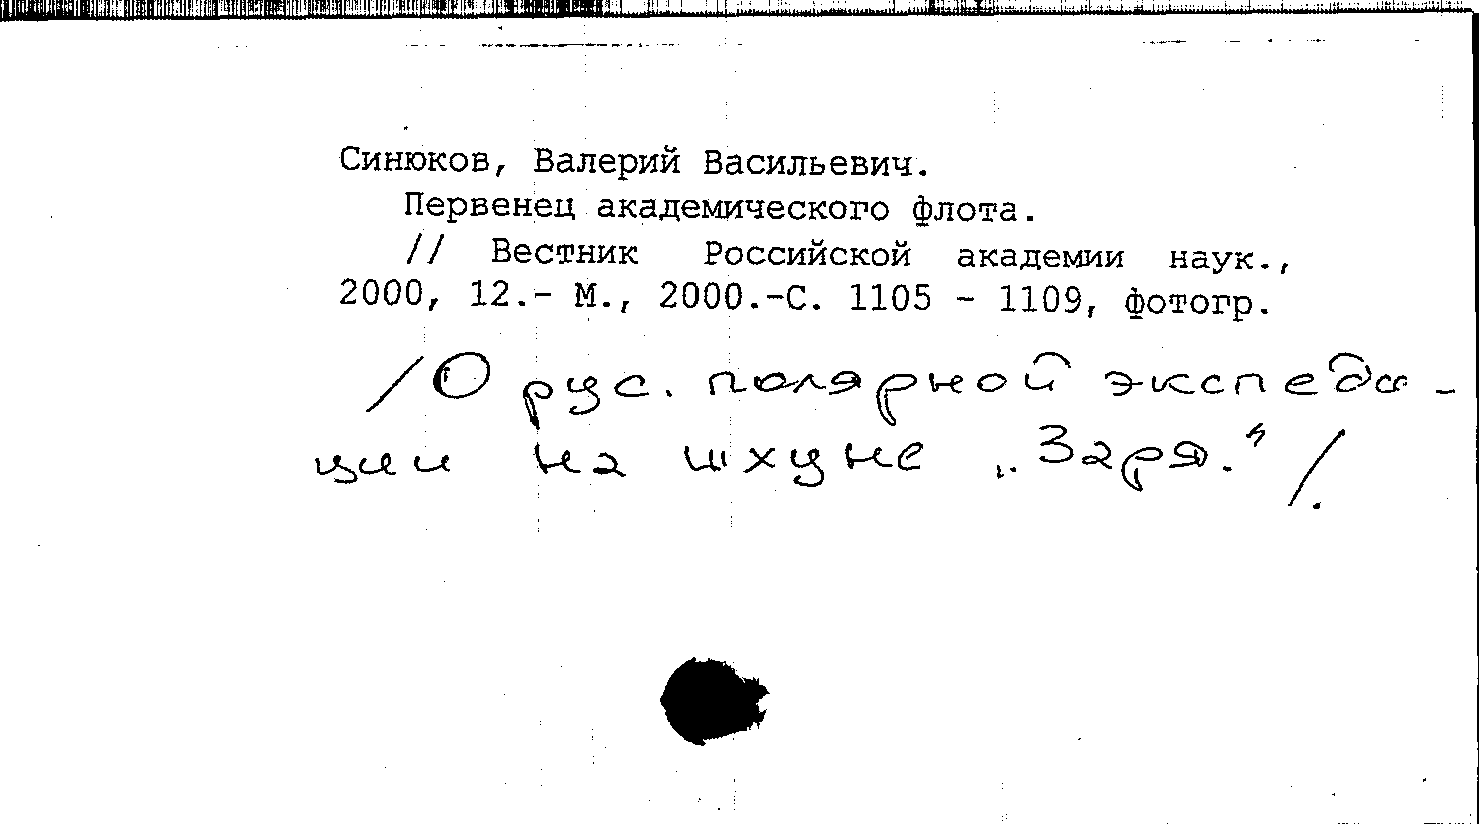 Синюков, Валерий Васильевич.
Первенец академического флота.
// Вестник Российской академии наук.,
2000, 12.- М., 2000.-С. 1105 - 1109, фотогр.
/О рус. полярной экспеди-
ции на шхуне „Заря."/.